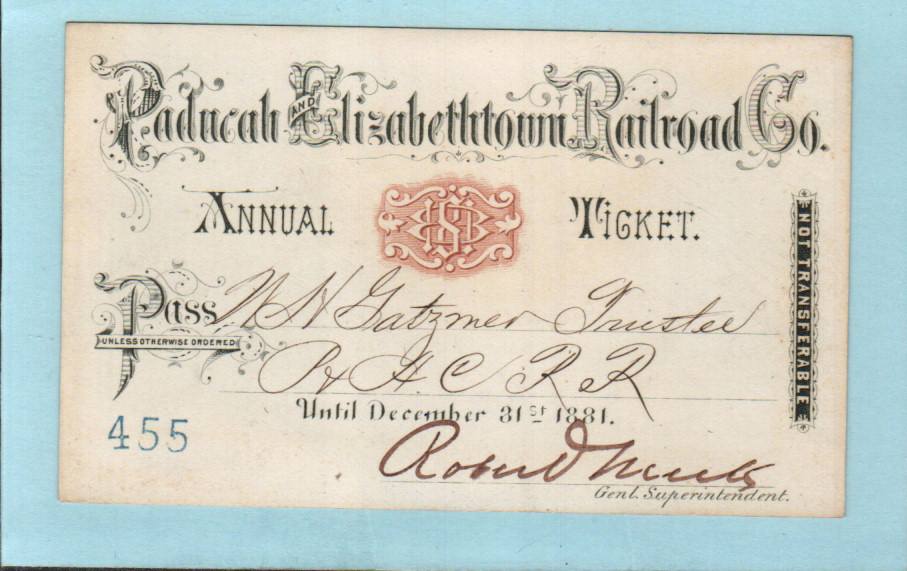 Paducah AND Elizabethtown Railroad Co.
ANNUAL TICKET.
NOT TRANSFERABLE
Pass W H Gatzmer Trustee
UNLESS OTHERWISE ORDERED
P & H C R R
Until December 31st 1881.
455
Robert Meek
Genl. Superintendent.